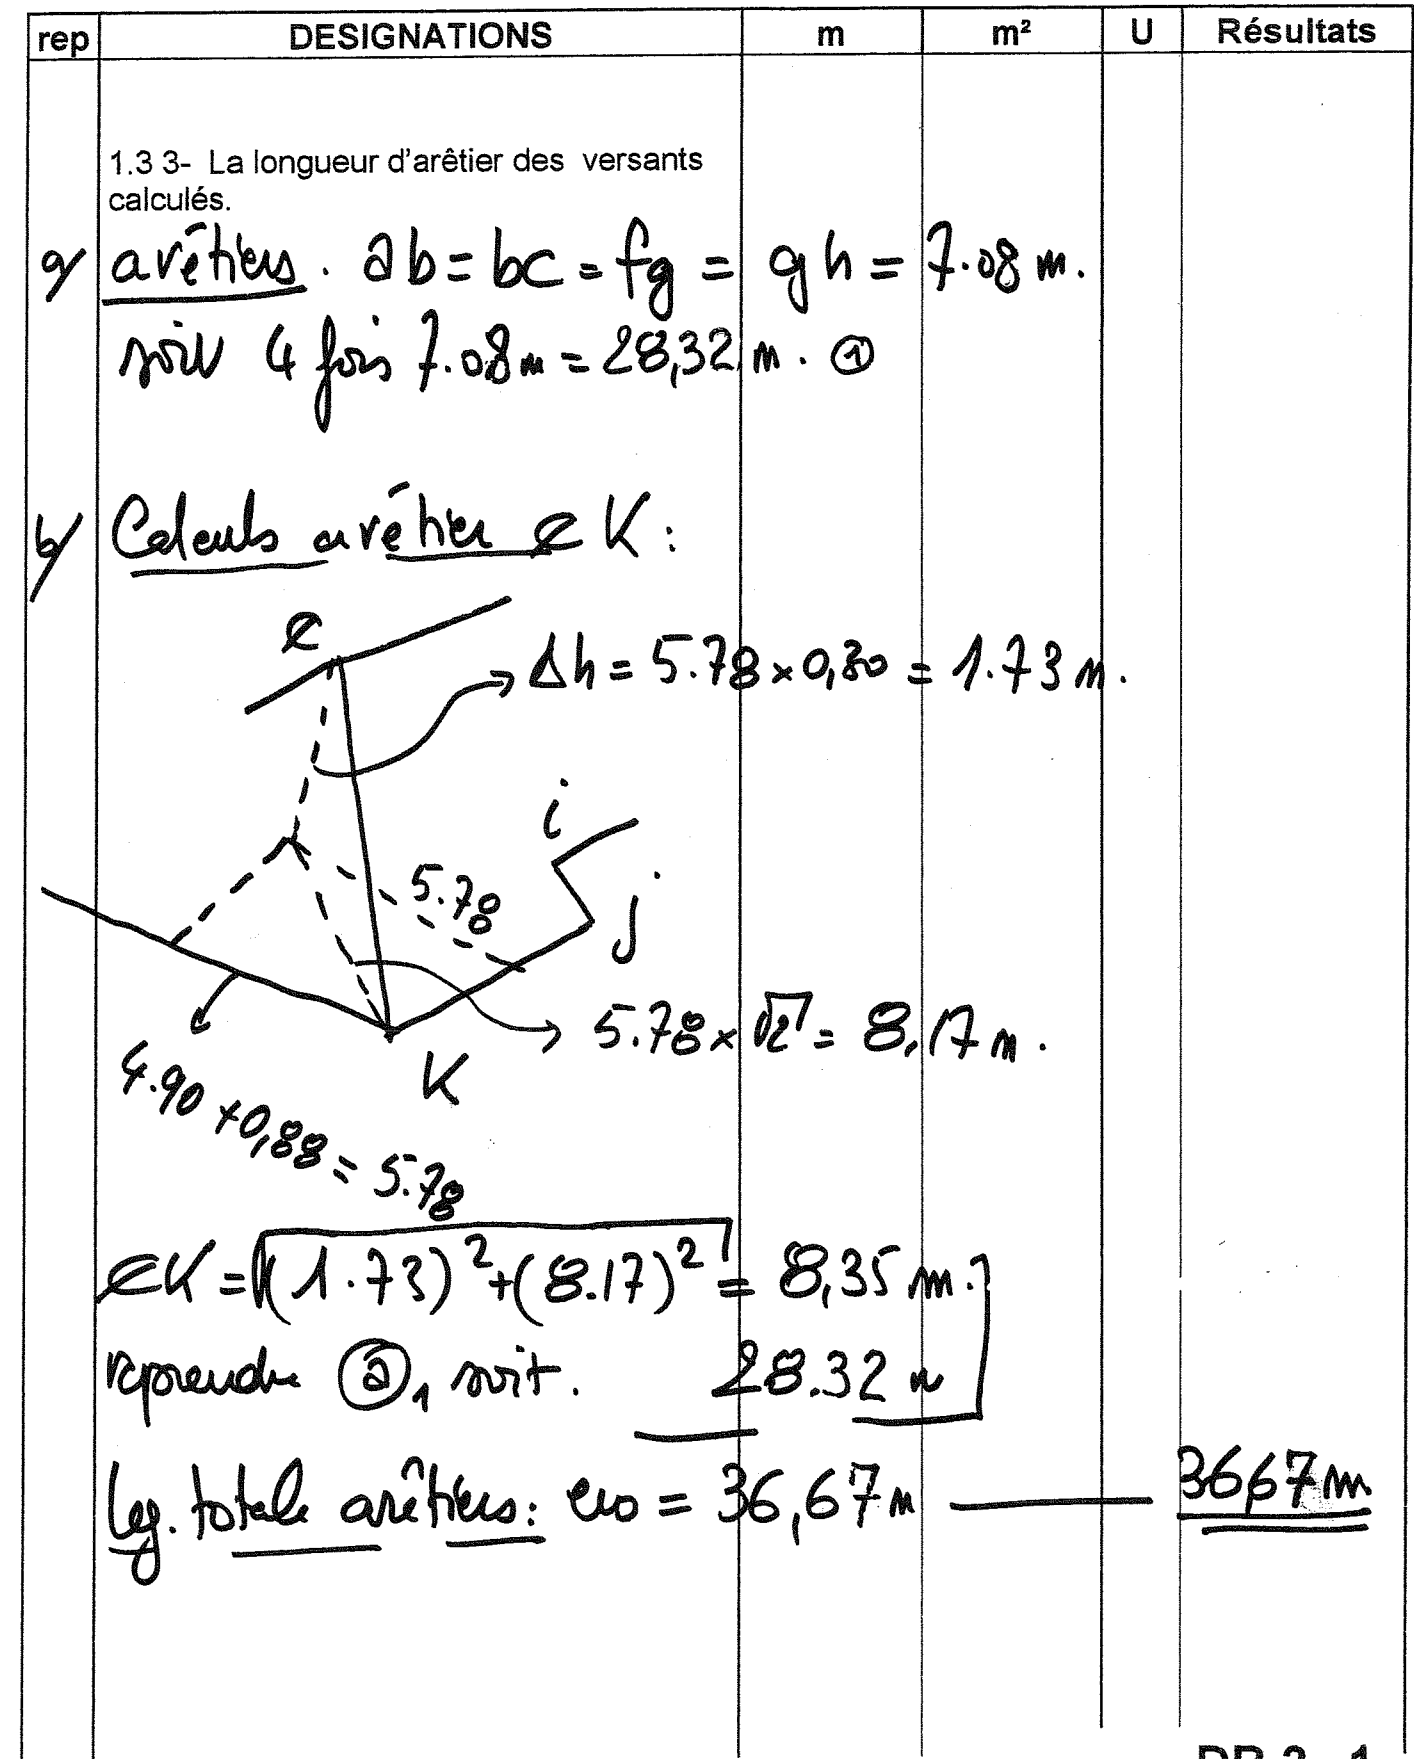 rep DESIGNATIONS m m² U Résultats
1.3 3- La longueur d'arêtier des versants
calculés.
a/ arêtiers. ab = bc = fg = gh = 7.08 m.
soit 4 fois 7.08 m = 28,32 m. ①
b/ Calculs arêtier eK :
e
Δh = 5.78 × 0,30 = 1.73 m.
i
5.78
j
5.78 × √2 = 8,17 m.
K
4.90 + 0,88 = 5.78
eK = √(1.73)² + (8.17)² = 8,35 m.
reprendre ⓐ₁ soit. 28.32 m
lg. totale arêtiers: = 36,67 m 36,67 m